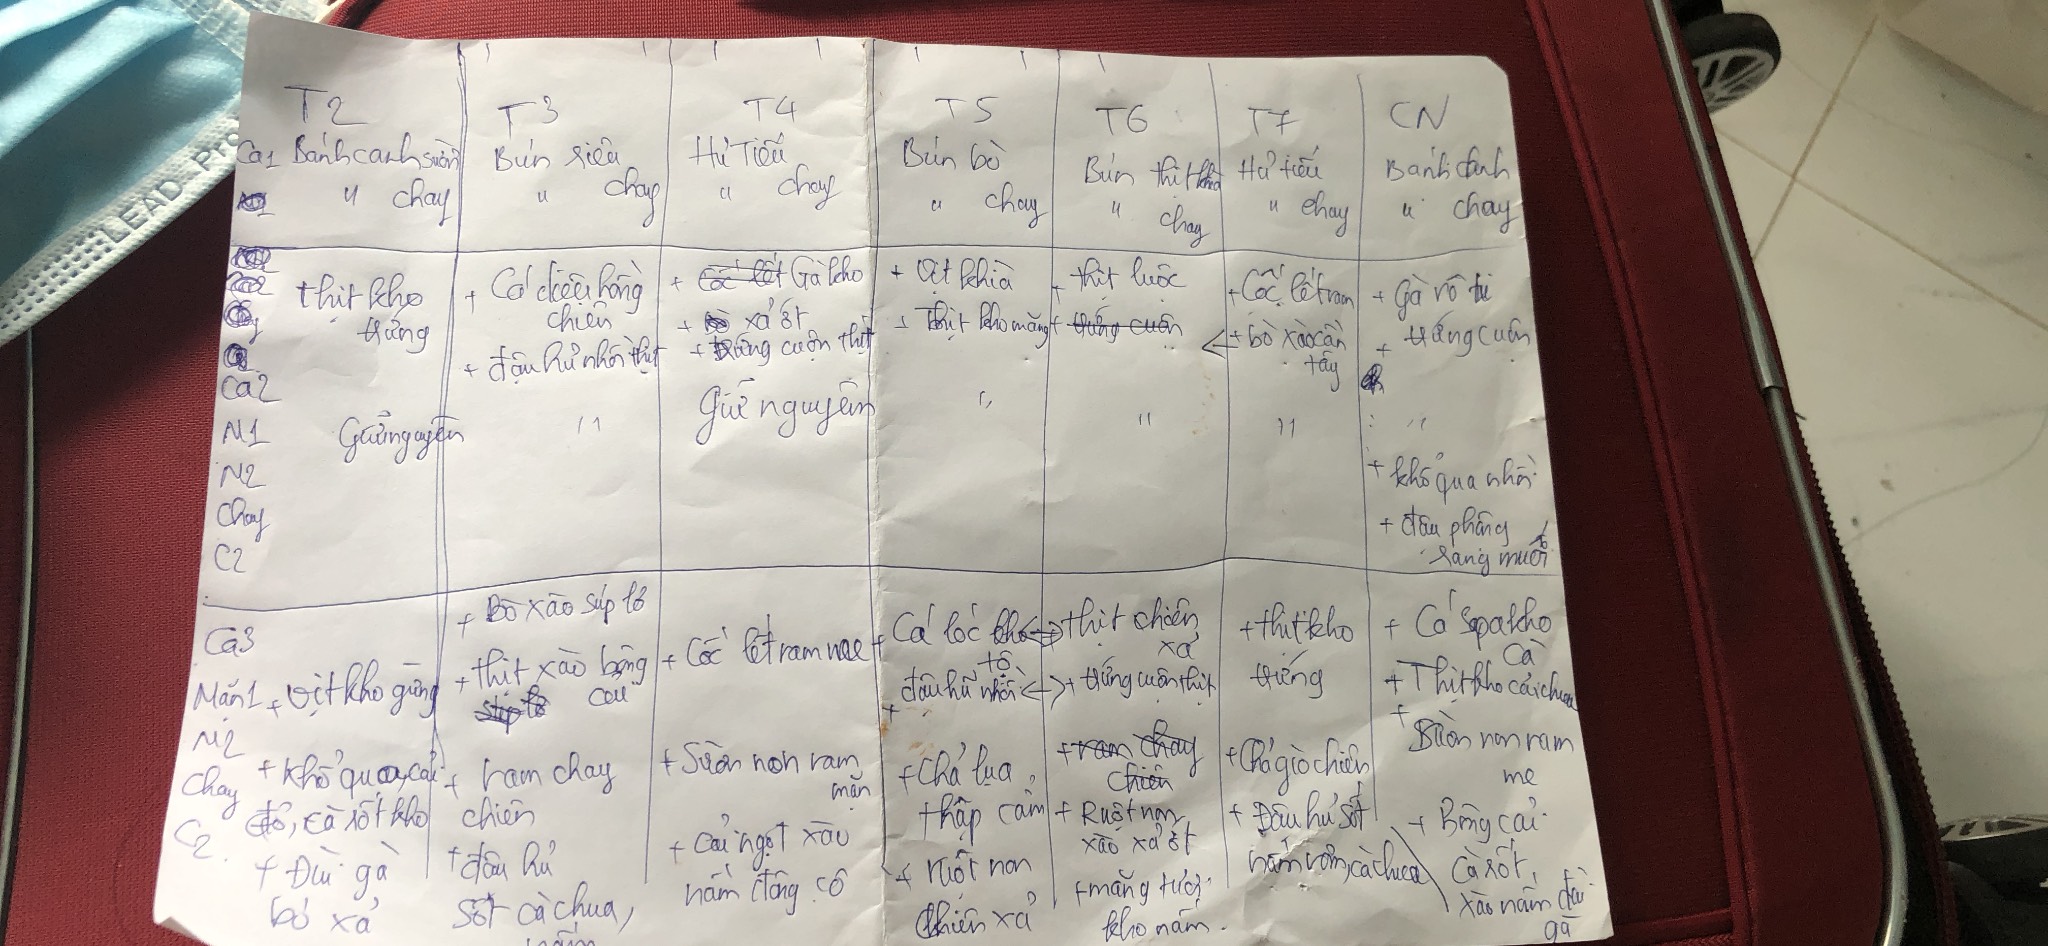 LEAD-Pro
T2
T3
T4
T5
T6
T7
CN
Ca1 Bánh canh sườn
" chay
Bún riêu
" chay
Hủ Tiếu
" chay
Bún bò
" chay
Bún thịt
" chay
Hủ tiếu
" chay
Bánh canh
" chay
Ca2
M1
N2
Chay
C2
thịt kho
trứng
Giữ nguyên
+ Cá diêu hồng
chiên
+ đậu hủ nhồi thịt
"
+ Cốc lết Gà kho
+ xả ớt
+ trứng cuộn thịt
Giữ nguyên
+ Vịt khìa
+ Thịt kho măng
"
+ thịt luộc
+ trứng cuộn
"
+ Cốc lết ram
+ bò xào cần
tây
"
+ Gà rô ti
+ trứng cuộn
"
+ khổ qua nhồi
+ đậu phộng
rang muối
Ca3
Mặn1
M2
Chay
C2
+ Vịt kho gừng
+ Khổ qua, cải
đỏ, cà rốt kho
+ Đùi gà
bó xả
+ Bò xào súp lơ
+ thịt xào bông
cải
+ ram chay
chiên
+ đậu hủ
sốt cà chua,
nấm
+ Cốc lết ram me
+ Sườn non ram
mặn
+ cải ngọt xào
nấm đông cô
+ Cá lóc kho
tộ
+ đậu hũ nhồi
+ Chả lụa
thập cẩm
+ ruột non
chiên xả
+ thịt chiên
xả
+ trứng cuộn thịt
+ ram chay
chiên
+ Ruột non
xào xả ớt
+ măng tươi
kho nấm.
+ thịt kho
trứng
+ Chả giò chiên
+ Đậu hủ sốt
nấm rơm, cà chua
+ Cá Sapa kho
cà
+ Thịt kho cải chua
+ Sườn non ram
me
+ Bông cải
cà rốt,
xào nấm đùi
gà